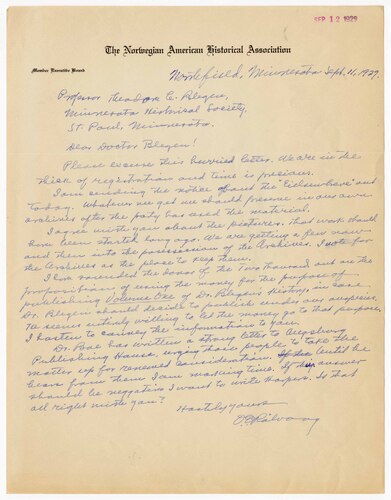 SEP 12 1929
The Norwegian American Historical Association
Member Executive Board
Northfield, Minnesota Sept. 11, 1929.
Professor Theodore C. Blegen,
Minnesota Historical Society,
St. Paul, Minnesota.
Dear Doctor Blegen:
Please excuse this hurried letter. We are in the
thick of registration and time is precious.
I am sending the notice about the "Eidsvold" out
today. Whatever we get we should preserve in our own
archives after the party has used the material.
I agree with you about the pictures. That work should
have been started long ago. We are getting a few now
and then into the possession of the Archives. I vote for
the Archives as the place to keep them.
I have sounded the donor of the Two Thousand out on the
proposition of using the money for the purpose of
publishing Volume One of Dr. Blegen's History, in case
Dr. Blegen should decide to publish under our auspices.
He seems entirely willing to let the money go to that purpose.
I hasten to convey the information to you.
Dr. Boe has written a strong letter to Augsburg
Publishing House, urging those people to take the
matter up for renewed consideration. Until we
hear from them I am marking time. If the answer
should be negative I want to write Harpers. Is that
all right with you?
Hastily yours
O. E. Rölvaag